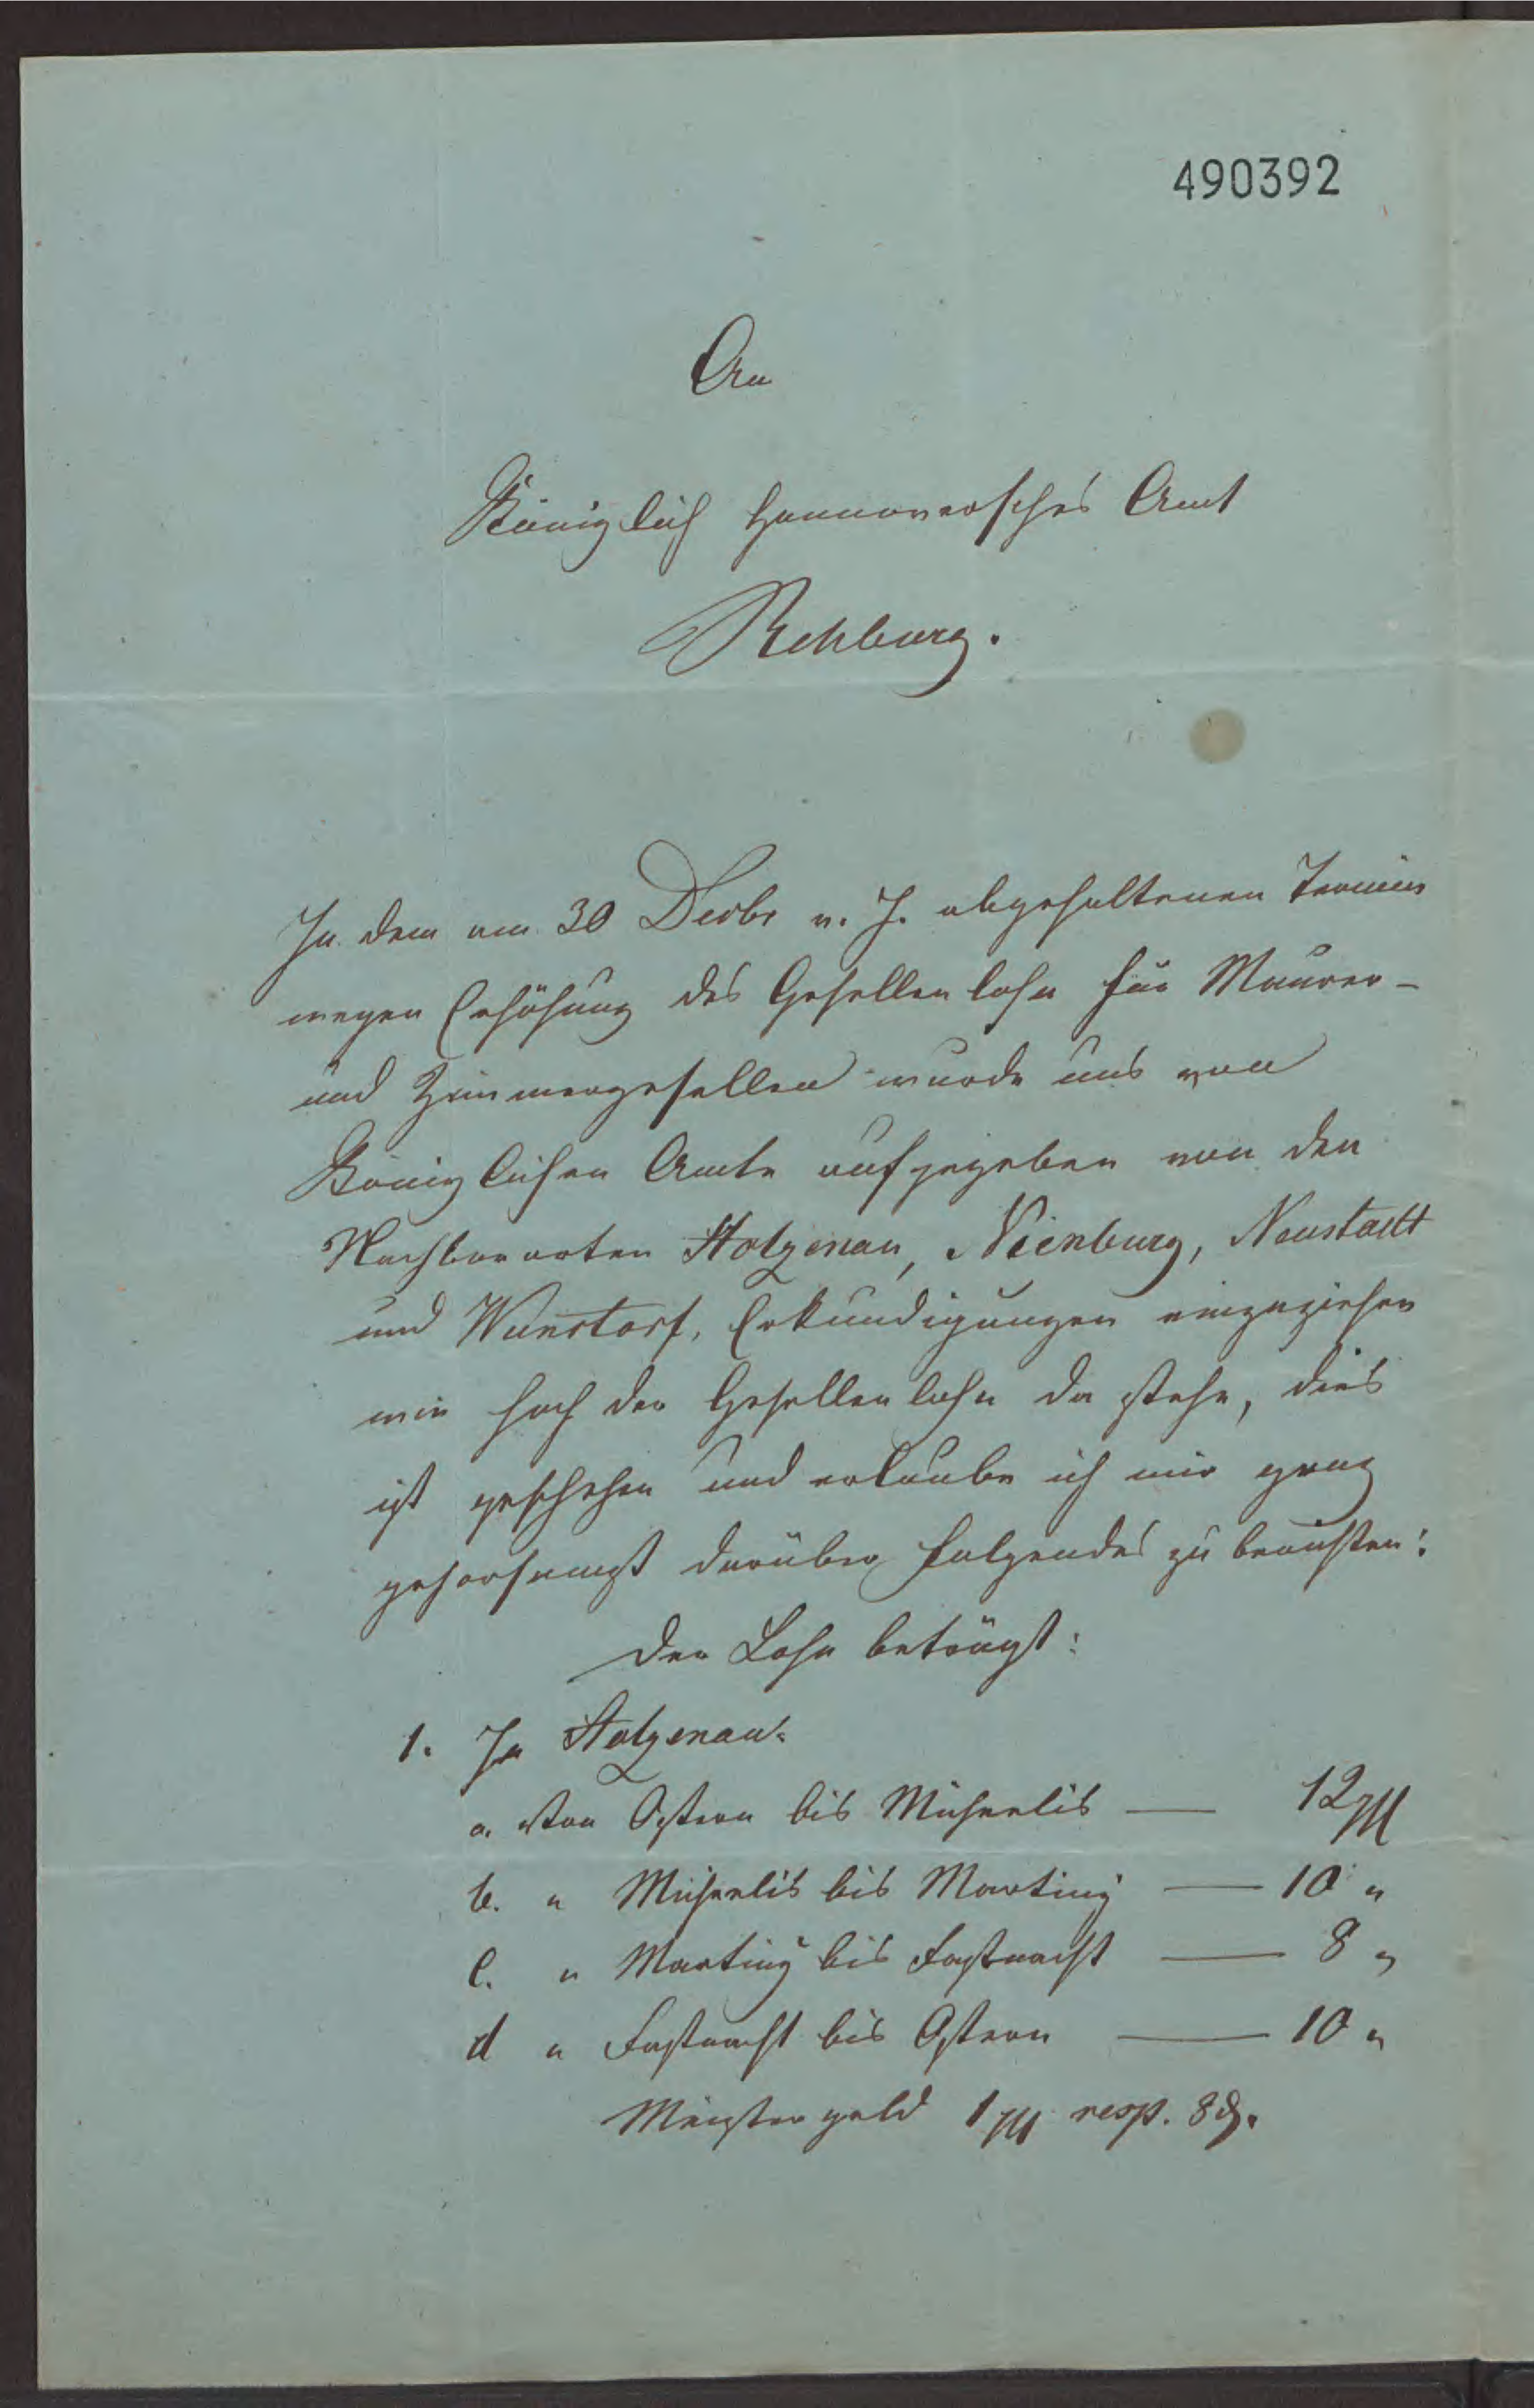 490392
An
Königlich Hannoversches Amt
Rehburg.
In dem am 30 Decbr v. J. abgehaltenen Termin
wegen Erhöhung des Gesellenlohn für Maurer-
und Zimmergesellen wurde uns von
Königlichen Amte aufgegeben von den
Nachbarorten Stolzenau, Nienburg, Neustadt
und Wunstorf, Erkundigungen einzuziehen
wie hoch der Gesellenlohn da stehe, dies
ist geschehen und erlaube ich mir ganz
gehorsamst darüber folgendes zu berichten:
Der Lohn beträgt:
1. In Stolzenau:
a. von Ostern bis Michaelis — 12 ggl
b. " Michaelis bis Martiny — 10 "
c. " Martiny bis Fastnacht — 8 "
d " Fastnacht bis Ostern — 10 "
Meistergeld 1 ggl resp. 8 ₰.